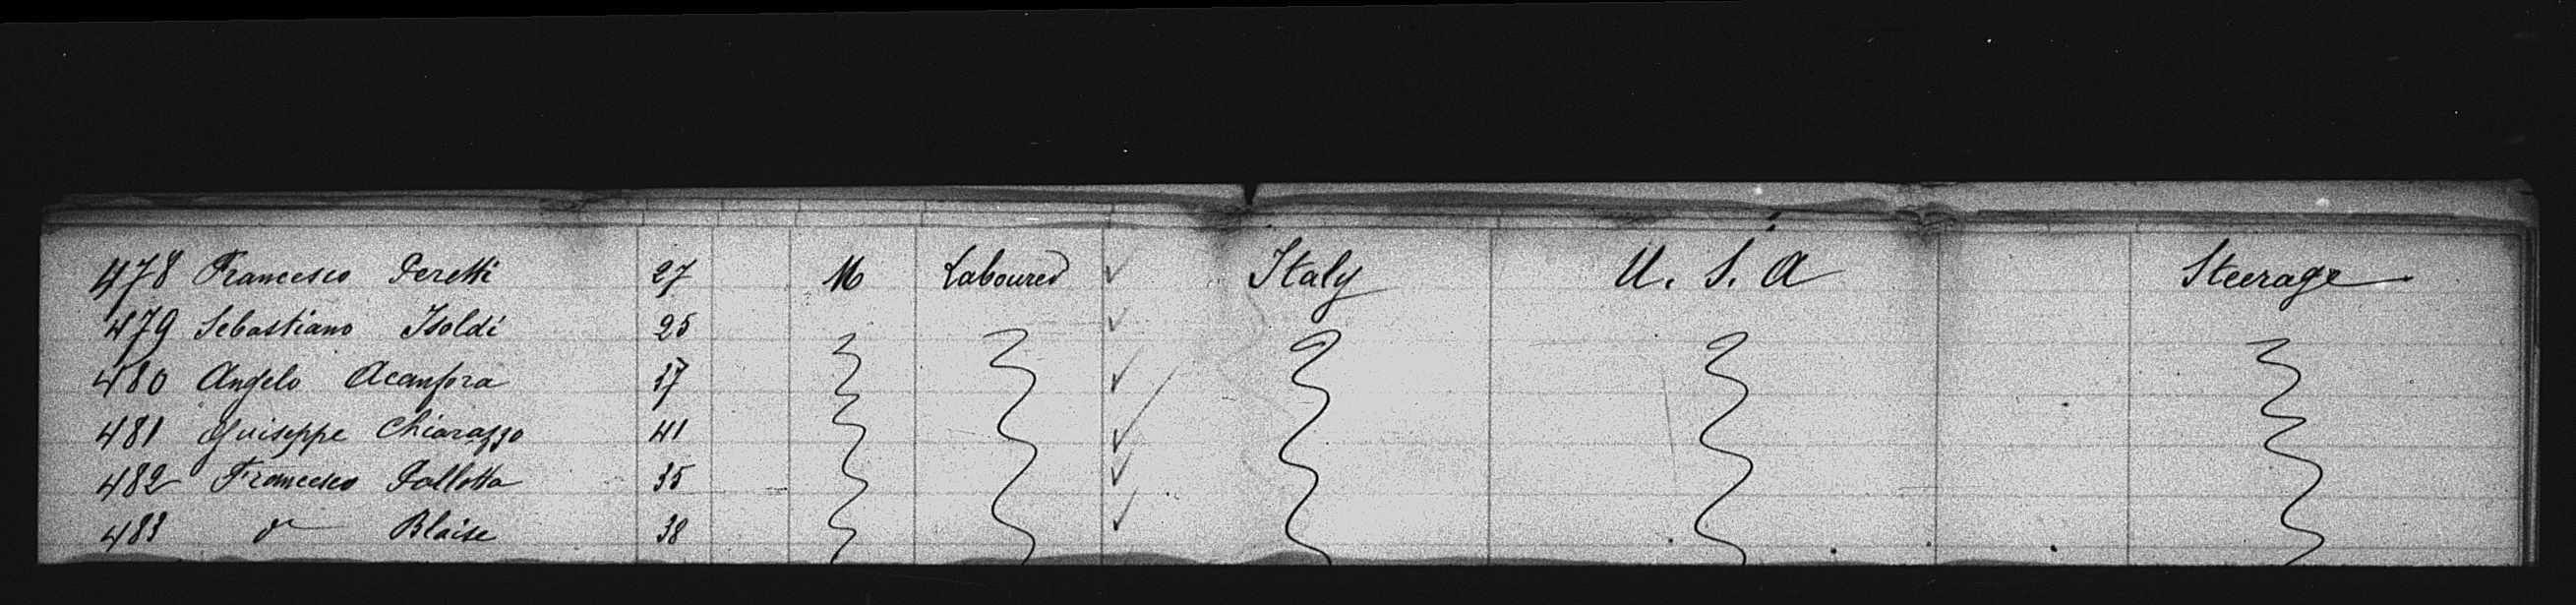 478 Francesco Peretti 27 M Labourer ✓ Italy U. S. A Steerage
479 Sebastiano Isoldi 25 ✓
480 Angelo Acanfora 37 ✓
481 Guiseppe Chiarazzo 41 ✓
482 Francesco Pallotta 35 ✓
483 do Blaise 38 ✓